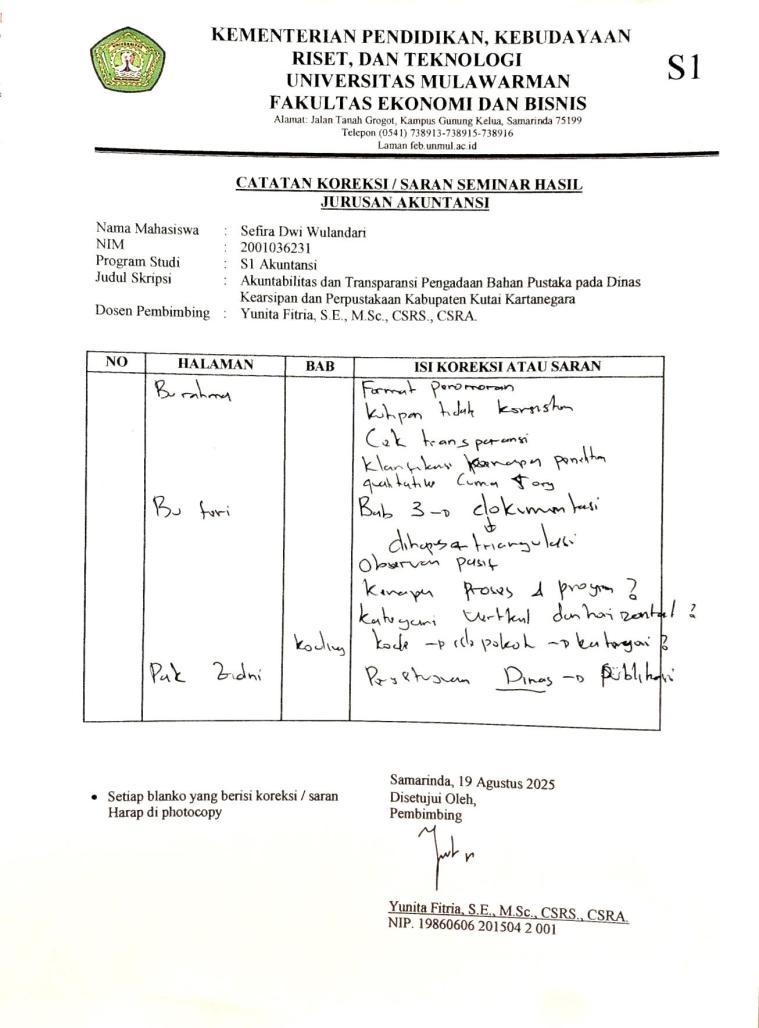 KEMENTERIAN PENDIDIKAN, KEBUDAYAAN
RISET, DAN TEKNOLOGI
UNIVERSITAS MULAWARMAN
FAKULTAS EKONOMI DAN BISNIS
S1
Alamat: Jalan Tanah Grogot, Kampus Gunung Kelua, Samarinda 75199
Telepon (0541) 738913-738915-738916
Laman feb.unmul.ac.id
CATATAN KOREKSI / SARAN SEMINAR HASIL
JURUSAN AKUNTANSI
Nama Mahasiswa : Sefira Dwi Wulandari
NIM : 2001036231
Program Studi : S1 Akuntansi
Judul Skripsi : Akuntabilitas dan Transparansi Pengadaan Bahan Pustaka pada Dinas
Kearsipan dan Perpustakaan Kabupaten Kutai Kartanegara
Dosen Pembimbing : Yunita Fitria, S.E., M.Sc., CSRS., CSRA.
NO HALAMAN BAB ISI KOREKSI ATAU SARAN
Bu rahma Format penomoran
kutipan tidak konsisten
Cek transparansi
klarifikasi kenapa peneliti
qualitative cuma
Bu Bab 3 → dokumentasi
↓
dihapus triangulasi
Observan pasif
Kenapa proses & program ?
kategori vertikal dan horizontal ?
koding kode → ide pokok → kategori ?
Pak Zidni Persetujuan Dinas → Publikasi
• Setiap blanko yang berisi koreksi / saran
Harap di photocopy
Samarinda, 19 Agustus 2025
Disetujui Oleh,
Pembimbing
Yunita Fitria, S.E., M.Sc., CSRS., CSRA.
NIP. 19860606 201504 2 001